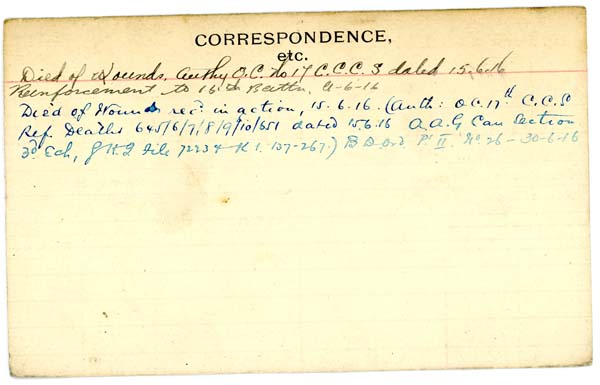 CORRESPONDENCE,
etc.
Died of Wounds, Authy O.C. No 17 C.C.S dated 15.6.16
Reinforcement to 16th Battn. 4-6-16
Died of Wounds rec'd in action, 15.6.16. (Auth: O.C. 17th C.C.S
Ref. Deaths 645/6/7/8/9/10/651 dated 15.6.16 A.A.G Can Section
3d Ech, G.H.Q File K 1. 137-267.) B D Ord. Pt II No 26 - 30-6-16